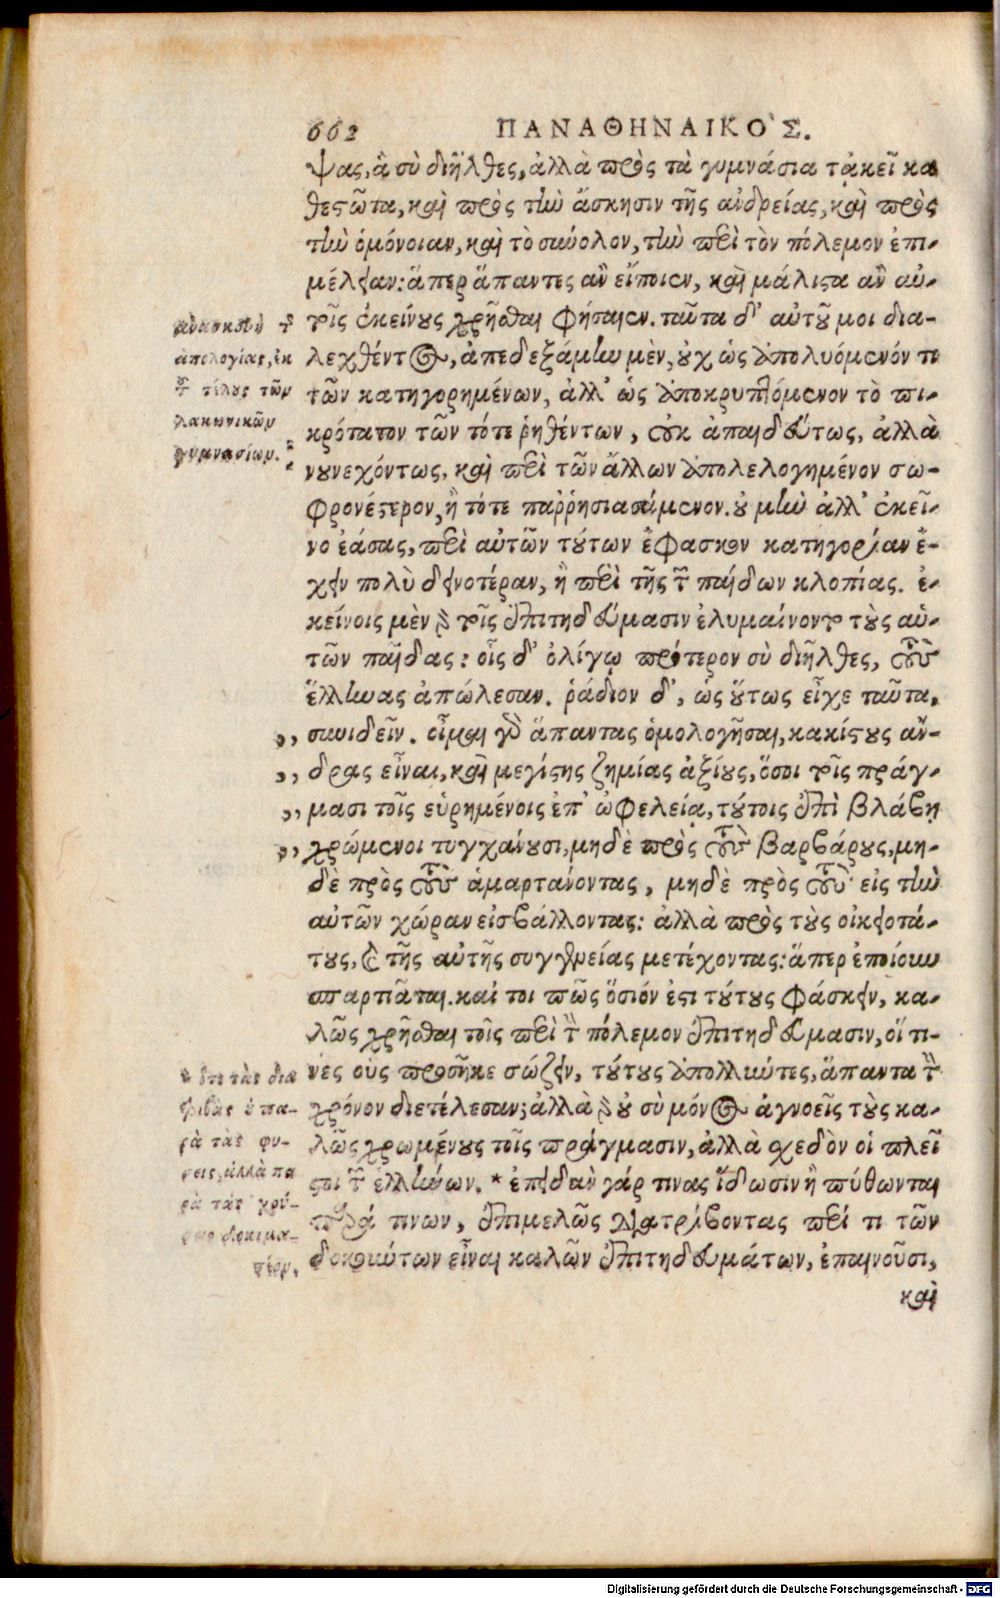 662 ΠΑΝΑΘΗΝΑΙΚΟ`Σ.
ψας, ἃ σὺ διῆλθες, ἀλλὰ πρὸς τὰ γυμνάσια τἀκεῖ κα
θεστῶτα, καὶ πρὸς τὴν ἄσκησιν τῆς ἀνδρείας, καὶ πρὸς
τὴν ὁμόνοιαν, καὶ τὸ σύνολον, τὴν περὶ τὸν πόλεμον ἐπι-
μέλειαν: ἅπερ ἅπαντες ἂν εἴποιεν, καὶ μάλιστα ἂν αὐ-
τοῖς ἐκείνους χρῆσθαι φήσαιεν. ταῦτα δ' αὐτοῦ μοι δια-
λεχθέντος, ἀπεδεξάμην μὲν, οὐχ ὡς ἀπολυόμενόν τι
τῶν κατηγορημένων, ἀλλ' ὡς ἀποκρυπτόμενον τὸ πι-
κρότατον τῶν τότε ῥηθέντων, οὐκ ἀπαιδεύτως, ἀλλὰ
νουνεχόντως, καὶ περὶ τῶν ἄλλων ἀπολελογημένον σω-
φρονέστερον, ἢ τότε παῤῥησιασάμενον. οὐ μὴν ἀλλ' ἐκεῖ-
νο ἐάσας, περὶ αὐτῶν τούτων ἔφασκον κατηγορίαν ἔ-
χειν πολὺ δεινοτέραν, ἢ περὶ τῆς τῶν παίδων κλοπίας. ἐ-
κείνοις μὲν γὰρ τοῖς ἐπιτηδεύμασιν ἐλυμαίνοντο τοὺς αὑ-
τῶν παῖδας: οἷς δ' ὀλίγῳ πρότερον σὺ διῆλθες, τοὺς
ἕλληνας ἀπώλεσαν. ῥᾴδιον δ', ὡς οὕτως εἶχε ταῦτα,
,, συνιδεῖν. οἶμαι γὰρ ἅπαντας ὁμολογῆσαι, κακίστους ἄν-
,, δρας εἶναι, καὶ μεγίστης ζημίας ἀξίους, ὅσοι τοῖς πράγ-
,, μασι τοῖς εὑρημένοις ἐπ' ὠφελείᾳ, τούτοις ἐπὶ βλάβῃ
,, χρώμενοι τυγχάνουσι, μηδὲ πρὸς τοὺς βαρβάρους, μη-
δὲ πρὸς τοὺς ἁμαρτάνοντας, μηδὲ πρὸς τοὺς εἰς τὴν
αὐτῶν χώραν εἰσβάλλοντας: ἀλλὰ πρὸς τοὺς οἰκειοτά-
τους, καὶ τῆς αὐτῆς συγγενείας μετέχοντας: ἅπερ ἐποίουν
σπαρτιᾶται. καί τοι πῶς ὅσιόν ἐστι τούτους φάσκειν, κα-
λῶς χρῆσθαι τοῖς περὶ τὸν πόλεμον ἐπιτηδεύμασιν, οἵ τι-
νες οὓς προσῆκε σώζειν, τούτους ἀπολλύντες, ἅπαντα τὸν
χρόνον διετέλεσαν; ἀλλὰ γὰρ οὐ σὺ μόνος ἀγνοεῖς τοὺς κα-
λῶς χρωμένους τοῖς πράγμασιν, ἀλλὰ σχεδὸν οἱ πλεῖ
στοι τῶν ἑλλήνων. * ἐπειδὰν γάρ τινας ἴδωσιν ἢ πύθωνται
παρά τινων, ἐπιμελῶς διατρίβοντας περί τι τῶν
δοκούντων εἶναι καλῶν ἐπιτηδευμάτων, ἐπαινοῦσι,
καὶ
ἀνασκευὴ τῆς
ἀπολογίας, ἐκ
τοῦ τέλους τῶν
λακωνικῶν
γυμνασίων.
* ὅτι τὰς δια
τριβὰς οὐ πα-
ρὰ τὰς φύ-
σεις, ἀλλὰ πα
ρὰ τὰς χρή-
σεις δοκιμα-
στέον.
Digitalisierung gefördert durch die Deutsche Forschungsgemeinschaft - DFG